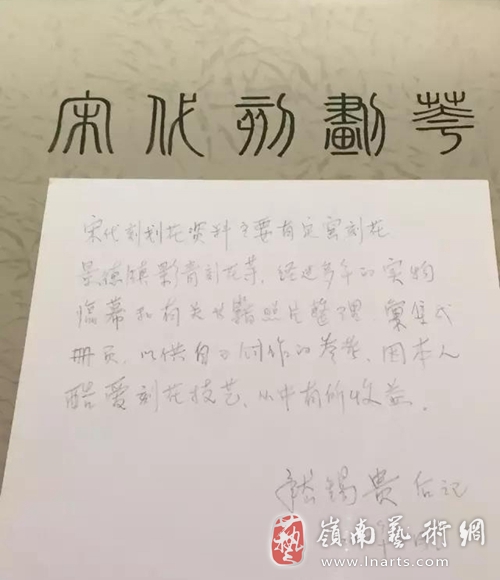 宋代刻劃花
宋代刻划花资料主要有定窑刻花
景德镇影青刻花等，经过多年的实物
临摹和有关书籍照片整理，汇集成
册页，以供自己创作的参考，因本人
酷爱刻花技艺，从中有所收益。
嵇锡贵后记
嶺南藝術網
www.lnarts.com